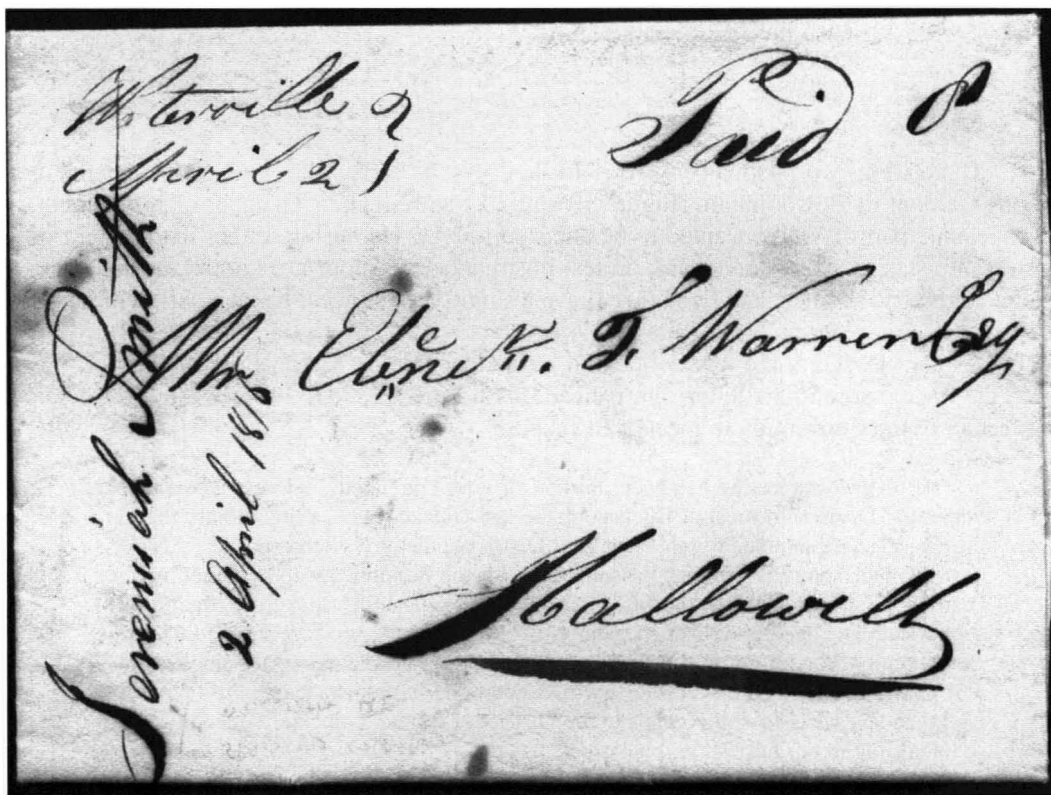 Waterville
April 2
Paid 8
Mr. Ebener. T. Warren Esq.
Hallowell
Jeremiah Smith
2 April 1810